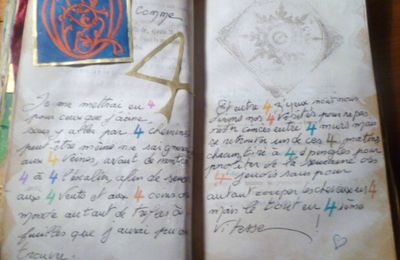 comme
4
Je me mettrai en 4
pour ceux que j'aime
sans y aller par 4 chemins
peut être même me
aux 4 veines, avant de monter
4 à 4 l'escalier afin de semer
aux 4 vents et aux 4 coins du
monde autant de trèfles à
feuilles que j'aurai pu en
trouver.
Et entre 4 z'yeux nous nous
dirons nos 4 vérités pour ne pas
coincés entre 4 murs mais
se retrouver un de ces 4 matins
tiré à 4 épingles pour
profiter de la semaine des
4 jeudis sans pour
autant couper les cheveux en 4
mais le tout en 4 ième
vitesse !